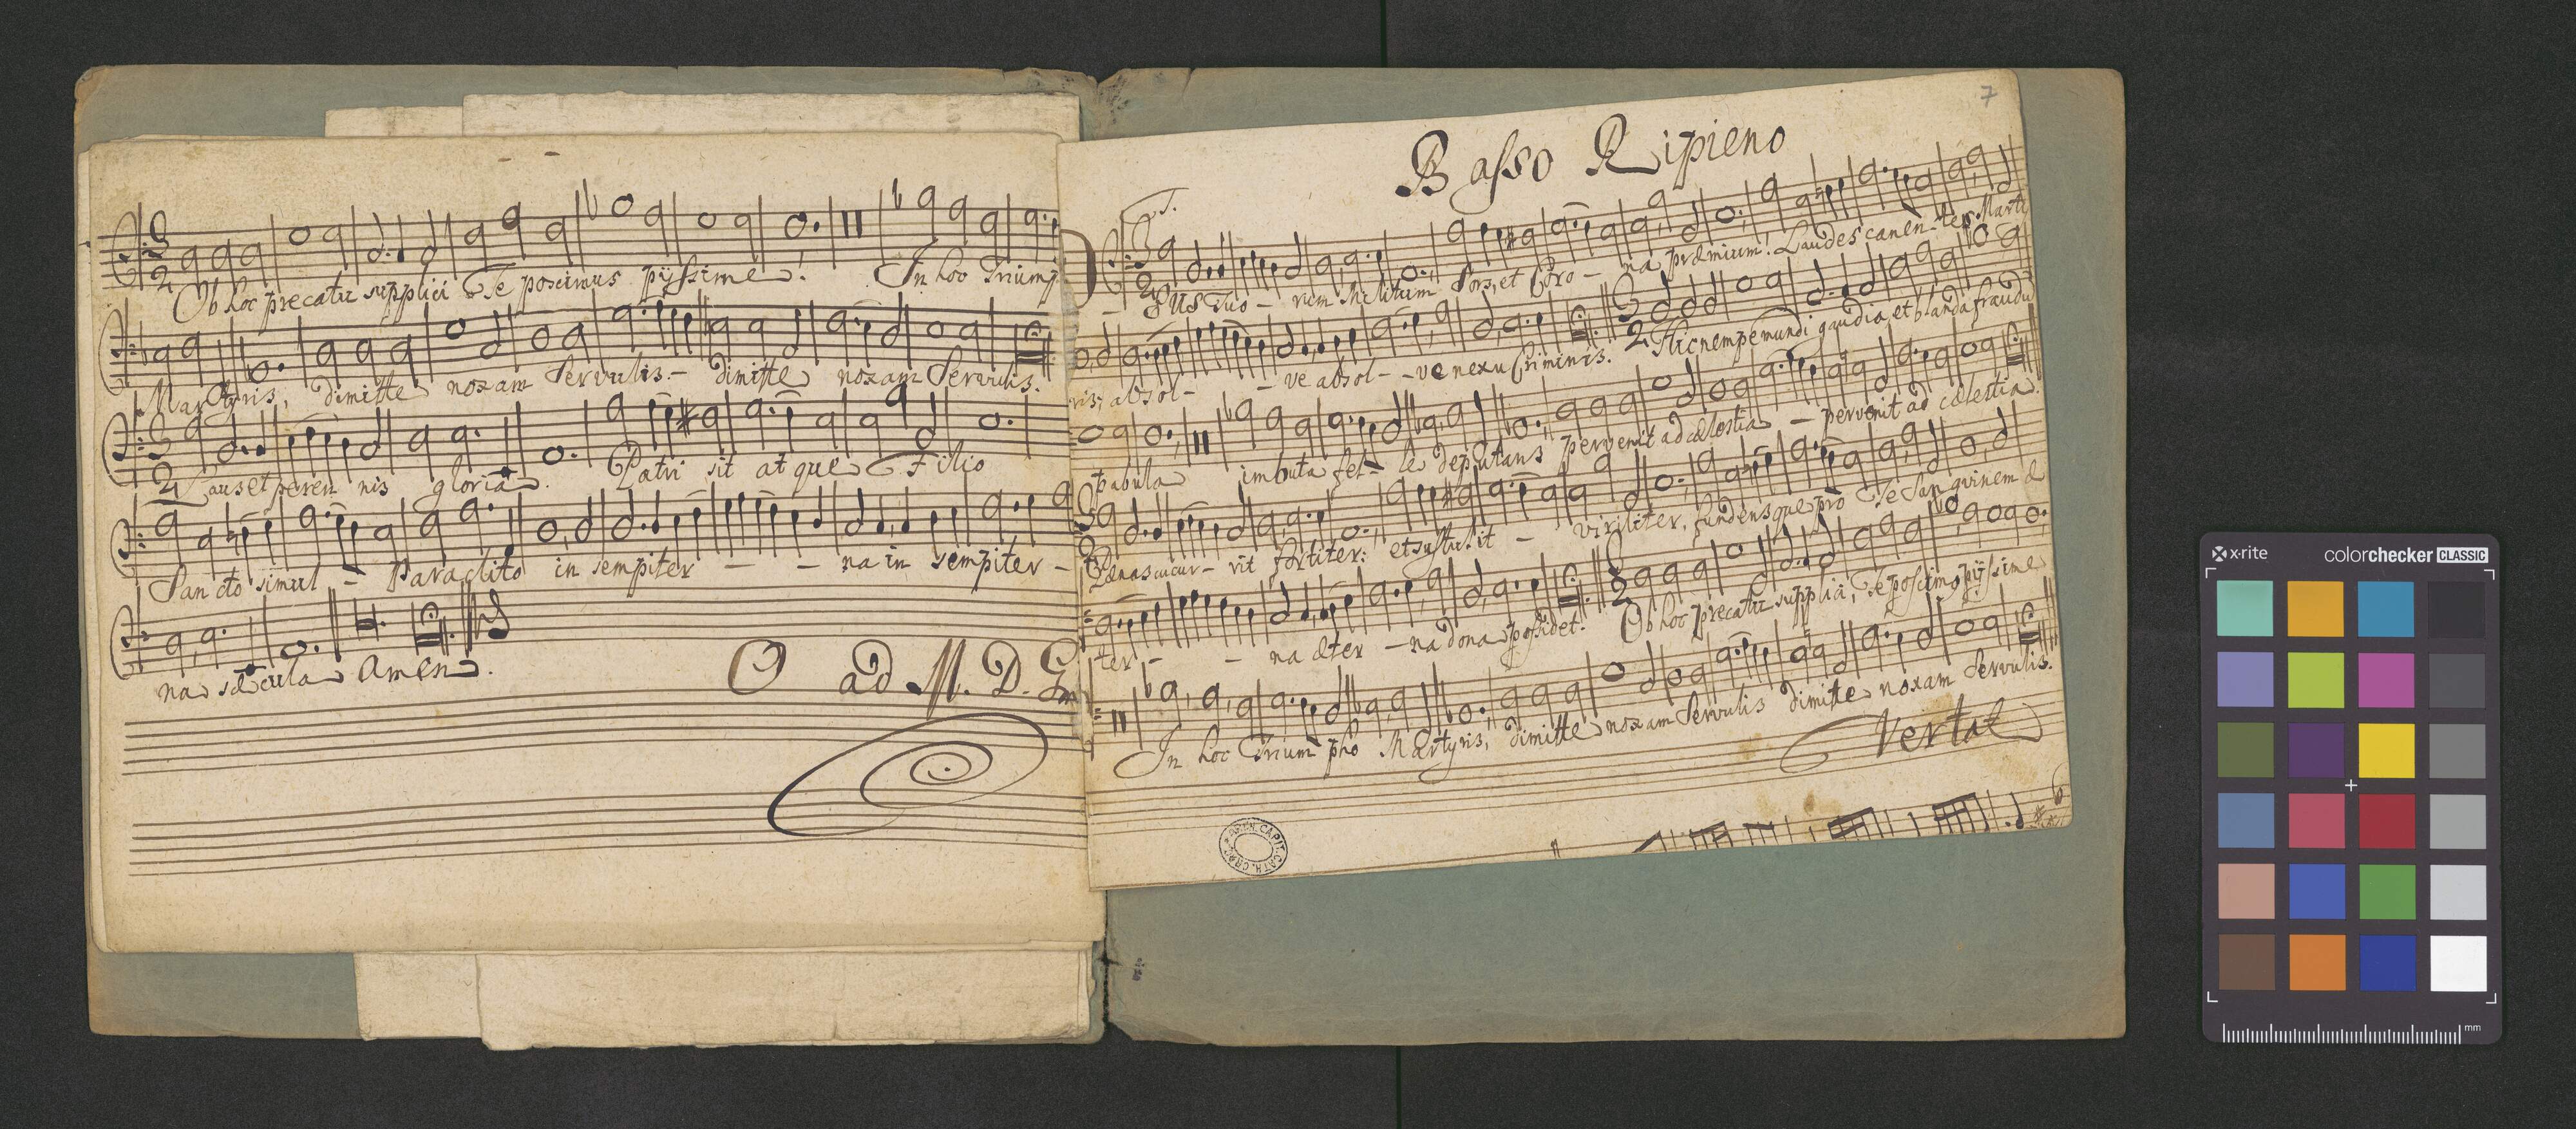 Ob hoc precatu supplici Te poscimus pijssime! In hoc Triump
Martyris, dimitte noxam Servulis. - dimitte noxam Servulis.
Laus et peren nis gloria. Patri sit at que Filio
San cto simul - Paraclito in sempiter - - na in sempiter -
na sæcula Amen.
O ad M. D. G
7
Basso Ripieno
us Tuo - rum Militum Sors, et Coro - na præmium! Laudes canen - tes Marty
ris, absol - - ve absol - - ve nexu Criminis. Hic nempe mundi gaudia, et blanda fraudu
pabula imbuta fel - le deputans pervenit ad cælestia - pervenit ad cælestia.
Pænas cucur - rit fortiter: et sustulit - viriliter, fundensque pro Te Sanguinem æ
ter - - na æter - na dona possidet. Ob hoc precatu supplici, Te poscimus pijssime
In hoc Trium pho Martyris, dimitte noxam Servulis dimitte noxam Servulis.
Vertat
x-rite colorchecker CLASSIC
mm